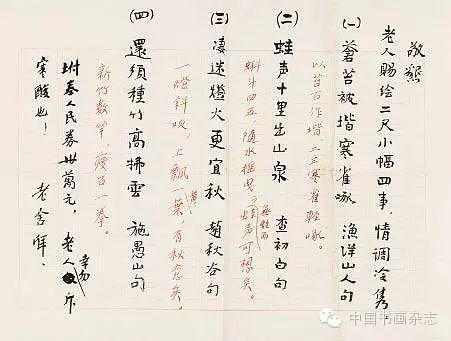 敬懇
老人賜繪二尺小幅四事,情調冷雋。
(一)蒼苔被堦寒雀啄 漁洋山人句
以苔古作堦,二三寒雀輕啄。
(二)蛙声十里出山泉 查初白句
蝌斗四五,隨水摇曳;無蛙而蛙声可想矣。
(三)凄迷燈火更宜秋 秋谷句
一燈斜吹,上飄一黄葉,有秋意矣。
(四)還須種竹高拂雲 施愚山句
新竹數竿,瘦石一拳。
坿奉人民券卅萬元,老人幸勿斥
寒酸也! 老舍
中国书画杂志